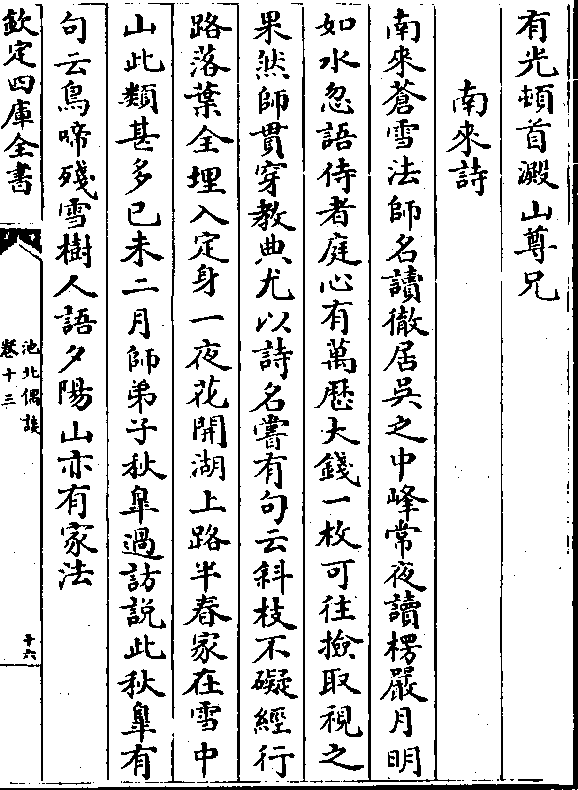 有光頓首澱山尊兄
南來詩
南來蒼雪法師名讀徹居吳之中峰常夜讀楞嚴月明
如水忽語侍者庭心有萬歷大錢一枚可往撿取視之
果然師貫穿教典尤以詩名嘗有句云斜枝不礙經行
路落葉全埋入定身一夜花開湖上路半春家在雪中
山此類甚多己未二月師弟子秋臯過訪説此秋臯有
句云鳥啼殘雪樹人語夕陽山亦有家法
欽定四庫全書
池北偶談
卷十三
十六